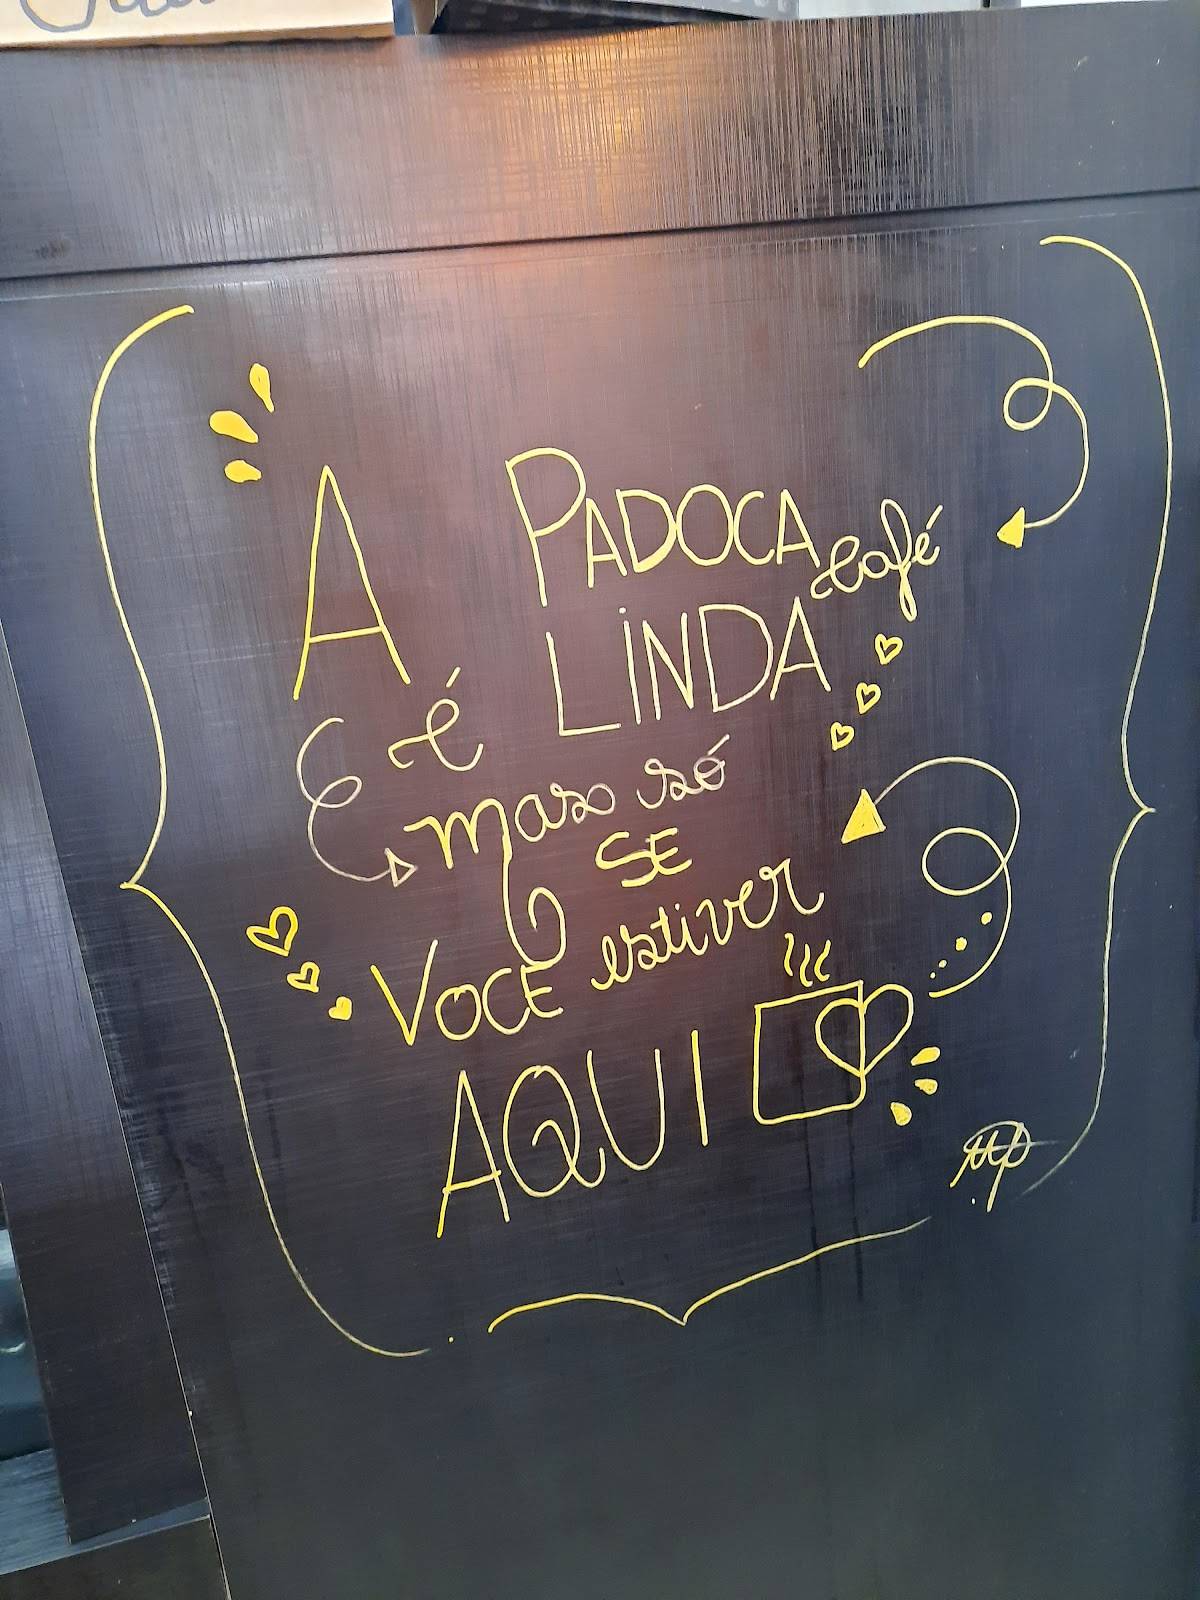 A PADOCA café
é LINDA
mas só
SE
VOCÊ estiver
AQUI
MP